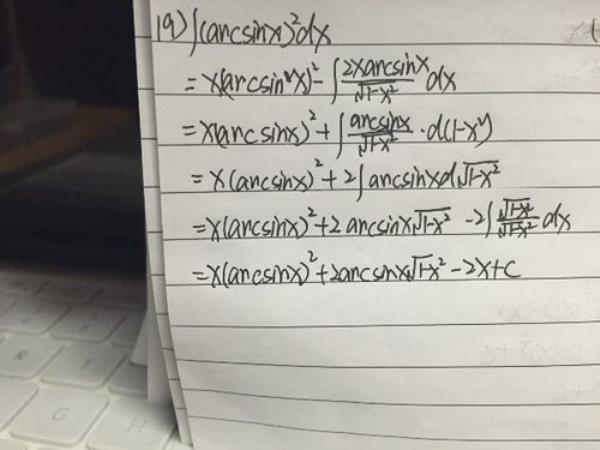 19) ∫(arcsinx)²dx
= x(arcsin x)² - ∫ 2xarcsinx/√1-x² dx
= x(arcsinx)² + ∫ arcsinx/√1-x² · d(1-x²)
= x(arcsinx)² + 2∫arcsinxd√1-x²
= x(arcsinx)² + 2arcsinx√1-x² - 2∫ √1-x²/√1-x² dx
= x(arcsinx)² + 2arcsinx√1-x² - 2x+C
G
H